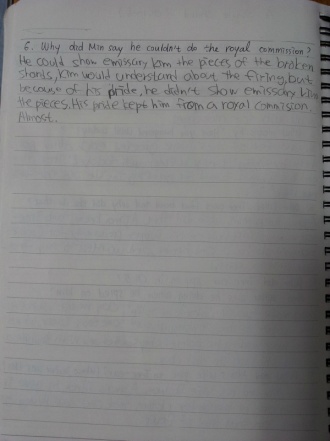 6. Why did Min say he couldn't do the royal commission?
He could show emissary kim the pieces of the broken
shards, kim would understand about the firing, but
because of his pride, he didn't show emissary kim
the pieces. His pride kept him from a royal commission.
Almost..